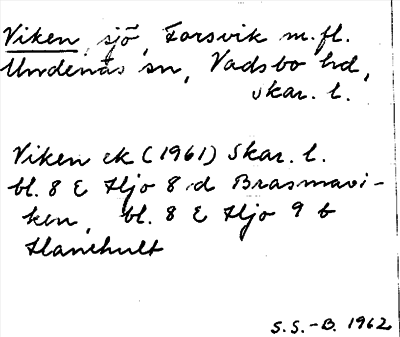 Viken, sjö, Forsvik m.fl.
Undenäs sn, Vadsbo hd,
Skar. l.
Viken ek (1961) Skar. l.
bl. 8 E Hjo 8 d Brasmavi-
ken, bl. 8 E Hjo 9 b
Hanehult
S.S.-B. 1962